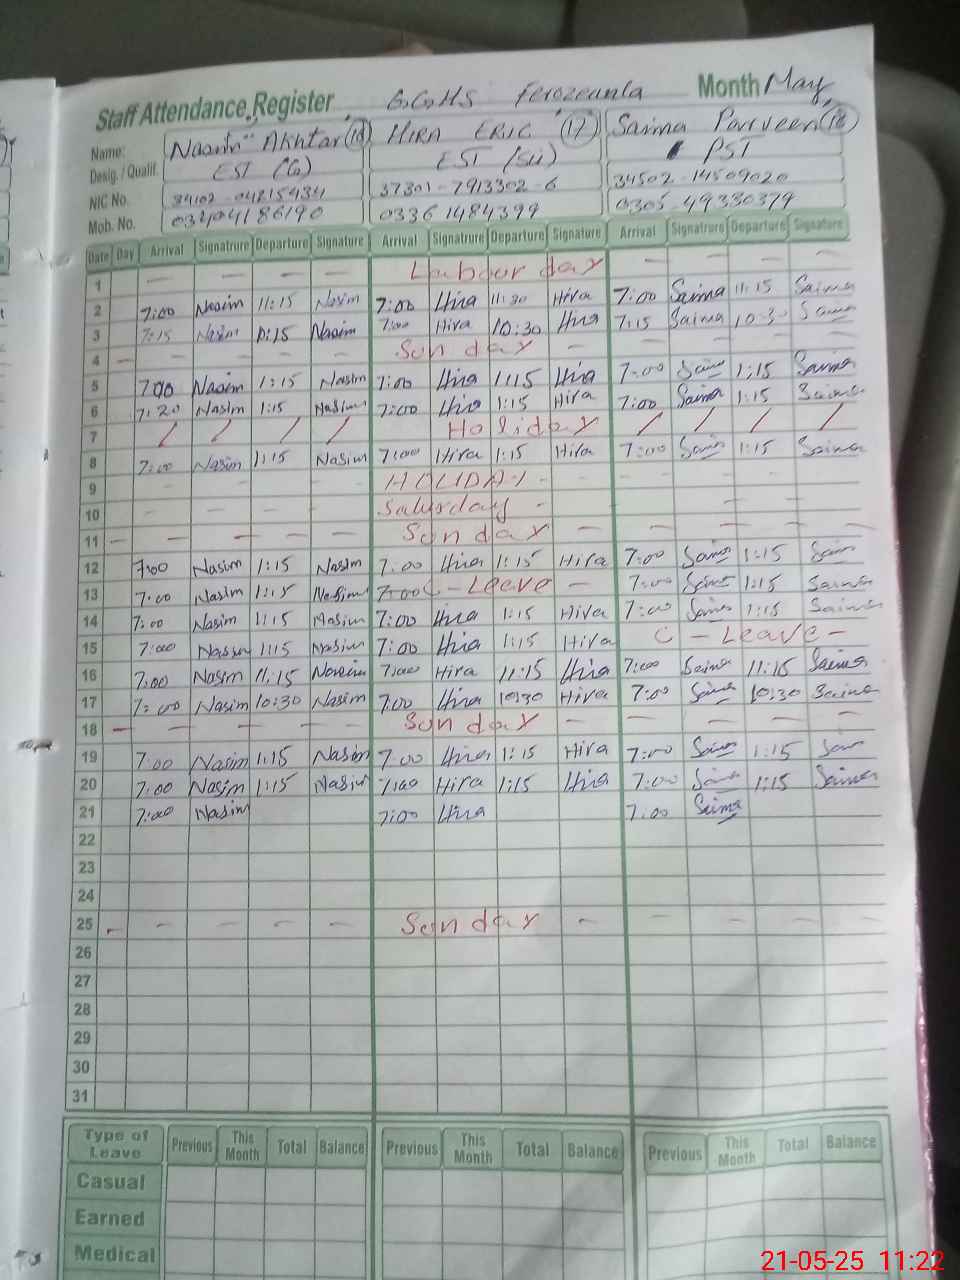 Staff Attendance Register G.G.H.S Ferozeanla Month May
Name: Akhtar (16) HIRA ERIC (17) Saima Parveen (18)
Desig. / Qualif. EST (G) EST (Sci) PST
NIC No. 37301-7913302-6 34502-14509020
Mob. No. 03404186190 03361484399 0305-49330379
Date Day Arrival Signatrure Departure Signature Arrival Signatrure Departure Signature Arrival Signatrure Departure Signature
1 Labour day
2 7:00 Nasim 11:15 Nasim 7:00 Hira 11:30 Hira 7:00 Saima 11:15 Saima
3 7:15 Nasim 10:15 Nasim 7:00 Hira 10:30 Hira 7:15 Saima 10:30 Saima
4 Sunday
5 7:00 Nasim 1:15 Nasim 7:00 Hira 1:15 Hira 7:00 Saima 1:15 Saima
6 7:20 Nasim 1:15 Nasim 7:00 Hira 1:15 Hira 7:00 Saima 1:15 Saima
7 Holiday
8 7:00 Nasim 1:15 Nasim 7:00 Hira 1:15 Hira 7:00 Saima 1:15 Saima
9 HOLIDAY
10 Saturday
11 Sunday
12 7:00 Nasim 1:15 Nasim 7:00 Hira 1:15 Hira 7:00 Saima 1:15 Saim
13 7:00 Nasim 1:15 Nasim 7:00 C-Leave 7:00 Saima 1:15 Saima
14 7:00 Nasim 1:15 Nasim 7:00 Hira 1:15 Hira 7:00 Saima 1:15 Saima
15 7:00 Nasim 1:15 Nasim 7:00 Hira 1:15 Hira C-Leave-
16 7:00 Nasim 11:15 Naseim 7:00 Hira 11:15 Hira 7:00 Saima 11:15 Saima
17 7:00 Nasim 10:30 Nasim 7:00 Hira 10:30 Hira 7:00 Saima 10:30 Saima
18 Sunday
19 7:00 Nasim 1:15 Nasim 7:00 Hira 1:15 Hira 7:00 Saima 1:15 Saim
20 7:00 Nasim 1:15 Nasim 7:00 Hira 1:15 Hira 7:00 Saima 1:15 Saima
21 7:00 Nasim 7:00 Hira 7:00 Saima
22
23
24
25 Sunday
26
27
28
29
30
31
Type of Leave Previous This Month Total Balance Previous This Month Total Balance Previous This Month Total Balance
Casual
Earned
Medical
21-05-25 11:22